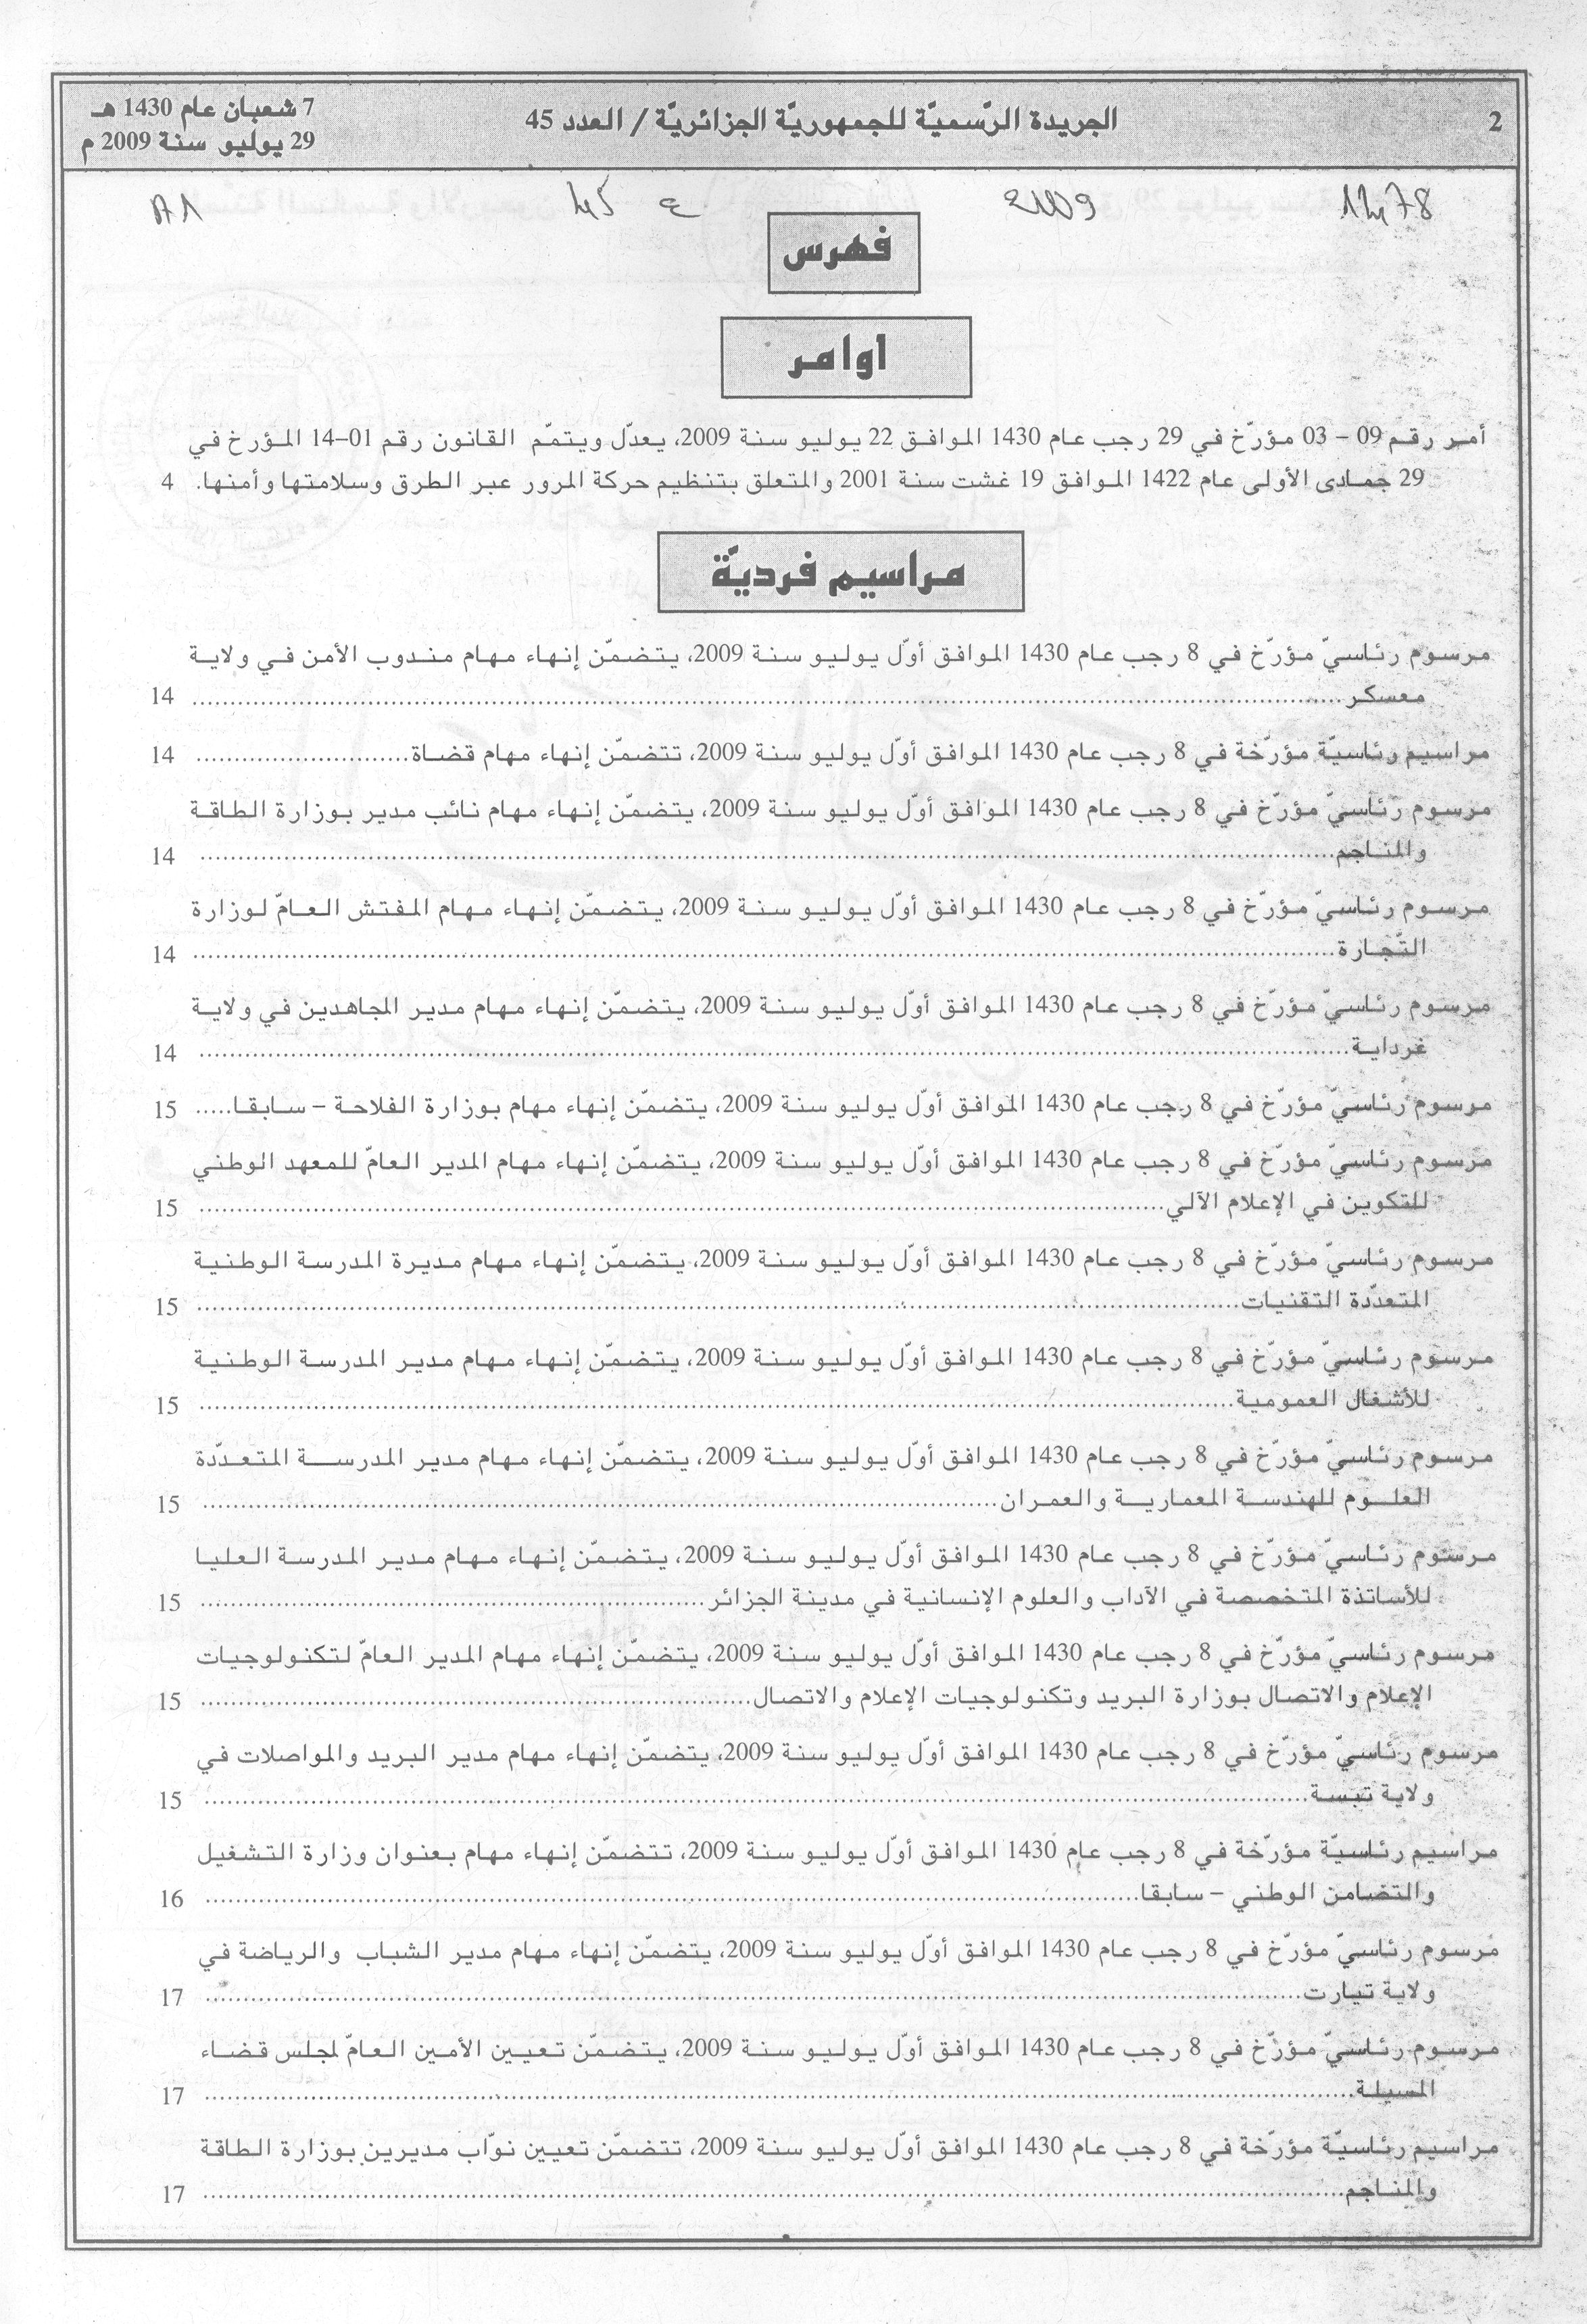 2
الجريدة الرّسميّة للجمهوريّة الجزائريّة / العدد 45
7 شعبان عام 1430 هـ
29 يوليو سنة 2009 م
1478
2009
ع 45
A1
فهرس
اوامر
أمر رقم 09 – 03 مؤرّخ في 29 رجب عام 1430 الموافق 22 يوليو سنة 2009، يعدّل ويتمّم القانون رقم 01–14 المؤرخ في
29 جمادى الأولى عام 1422 الموافق 19 غشت سنة 2001 والمتعلق بتنظيم حركة المرور عبر الطرق وسلامتها وأمنها. 4
مراسيم فرديّة
مرسوم رئاسيّ مؤرّخ في 8 رجب عام 1430 الموافق أوّل يوليو سنة 2009، يتضمّن إنهاء مهام مندوب الأمن في ولاية
معسكر........ 14
مراسيم رئاسيّة مؤرّخة في 8 رجب عام 1430 الموافق أوّل يوليو سنة 2009، تتضمّن إنهاء مهام قضاة........ 14
مرسوم رئاسيّ مؤرّخ في 8 رجب عام 1430 الموافق أوّل يوليو سنة 2009، يتضمّن إنهاء مهام نائب مدير بوزارة الطاقة
والمناجم........ 14
مرسوم رئاسيّ مؤرّخ في 8 رجب عام 1430 الموافق أوّل يوليو سنة 2009، يتضمّن إنهاء مهام المفتش العامّ لوزارة
التّجارة........ 14
مرسوم رئاسيّ مؤرّخ في 8 رجب عام 1430 الموافق أوّل يوليو سنة 2009، يتضمّن إنهاء مهام مدير المجاهدين في ولاية
غرداية........ 14
مرسوم رئاسيّ مؤرّخ في 8 رجب عام 1430 الموافق أوّل يوليو سنة 2009، يتضمّن إنهاء مهام بوزارة الفلاحة – سابقا..... 15
مرسوم رئاسيّ مؤرّخ في 8 رجب عام 1430 الموافق أوّل يوليو سنة 2009، يتضمّن إنهاء مهام المدير العامّ للمعهد الوطني
للتكوين في الإعلام الآلي........ 15
مرسوم رئاسيّ مؤرّخ في 8 رجب عام 1430 الموافق أوّل يوليو سنة 2009، يتضمّن إنهاء مهام مديرة المدرسة الوطنية
المتعدّدة التقنيات........ 15
مرسوم رئاسيّ مؤرّخ في 8 رجب عام 1430 الموافق أوّل يوليو سنة 2009، يتضمّن إنهاء مهام مدير المدرسة الوطنية
للأشغال العمومية........ 15
مرسوم رئاسيّ مؤرّخ في 8 رجب عام 1430 الموافق أوّل يوليو سنة 2009، يتضمّن إنهاء مهام مدير المدرسة المتعدّدة
العلوم للهندسة المعمارية والعمران........ 15
مرسوم رئاسيّ مؤرّخ في 8 رجب عام 1430 الموافق أوّل يوليو سنة 2009، يتضمّن إنهاء مهام مدير المدرسة العليا
للأساتذة المتخصصة في الآداب والعلوم الإنسانية في مدينة الجزائر........ 15
مرسوم رئاسيّ مؤرّخ في 8 رجب عام 1430 الموافق أوّل يوليو سنة 2009، يتضمّن إنهاء مهام المدير العامّ لتكنولوجيات
الإعلام والاتصال بوزارة البريد وتكنولوجيات الإعلام والاتصال........ 15
مرسوم رئاسيّ مؤرّخ في 8 رجب عام 1430 الموافق أوّل يوليو سنة 2009، يتضمّن إنهاء مهام مدير البريد والمواصلات في
ولاية تبسة........ 15
مراسيم رئاسيّة مؤرّخة في 8 رجب عام 1430 الموافق أوّل يوليو سنة 2009، تتضمّن إنهاء مهام بعنوان وزارة التشغيل
والتضامن الوطني – سابقا........ 16
مرسوم رئاسيّ مؤرّخ في 8 رجب عام 1430 الموافق أوّل يوليو سنة 2009، يتضمّن إنهاء مهام مدير الشباب والرياضة في
ولاية تيارت........ 17
مرسوم رئاسيّ مؤرّخ في 8 رجب عام 1430 الموافق أوّل يوليو سنة 2009، يتضمّن تعيين الأمين العامّ لمجلس قضاء
المسيلة........ 17
مراسيم رئاسيّة مؤرّخة في 8 رجب عام 1430 الموافق أوّل يوليو سنة 2009، تتضمّن تعيين نوّاب مديرين بوزارة الطاقة
والمناجم........ 17